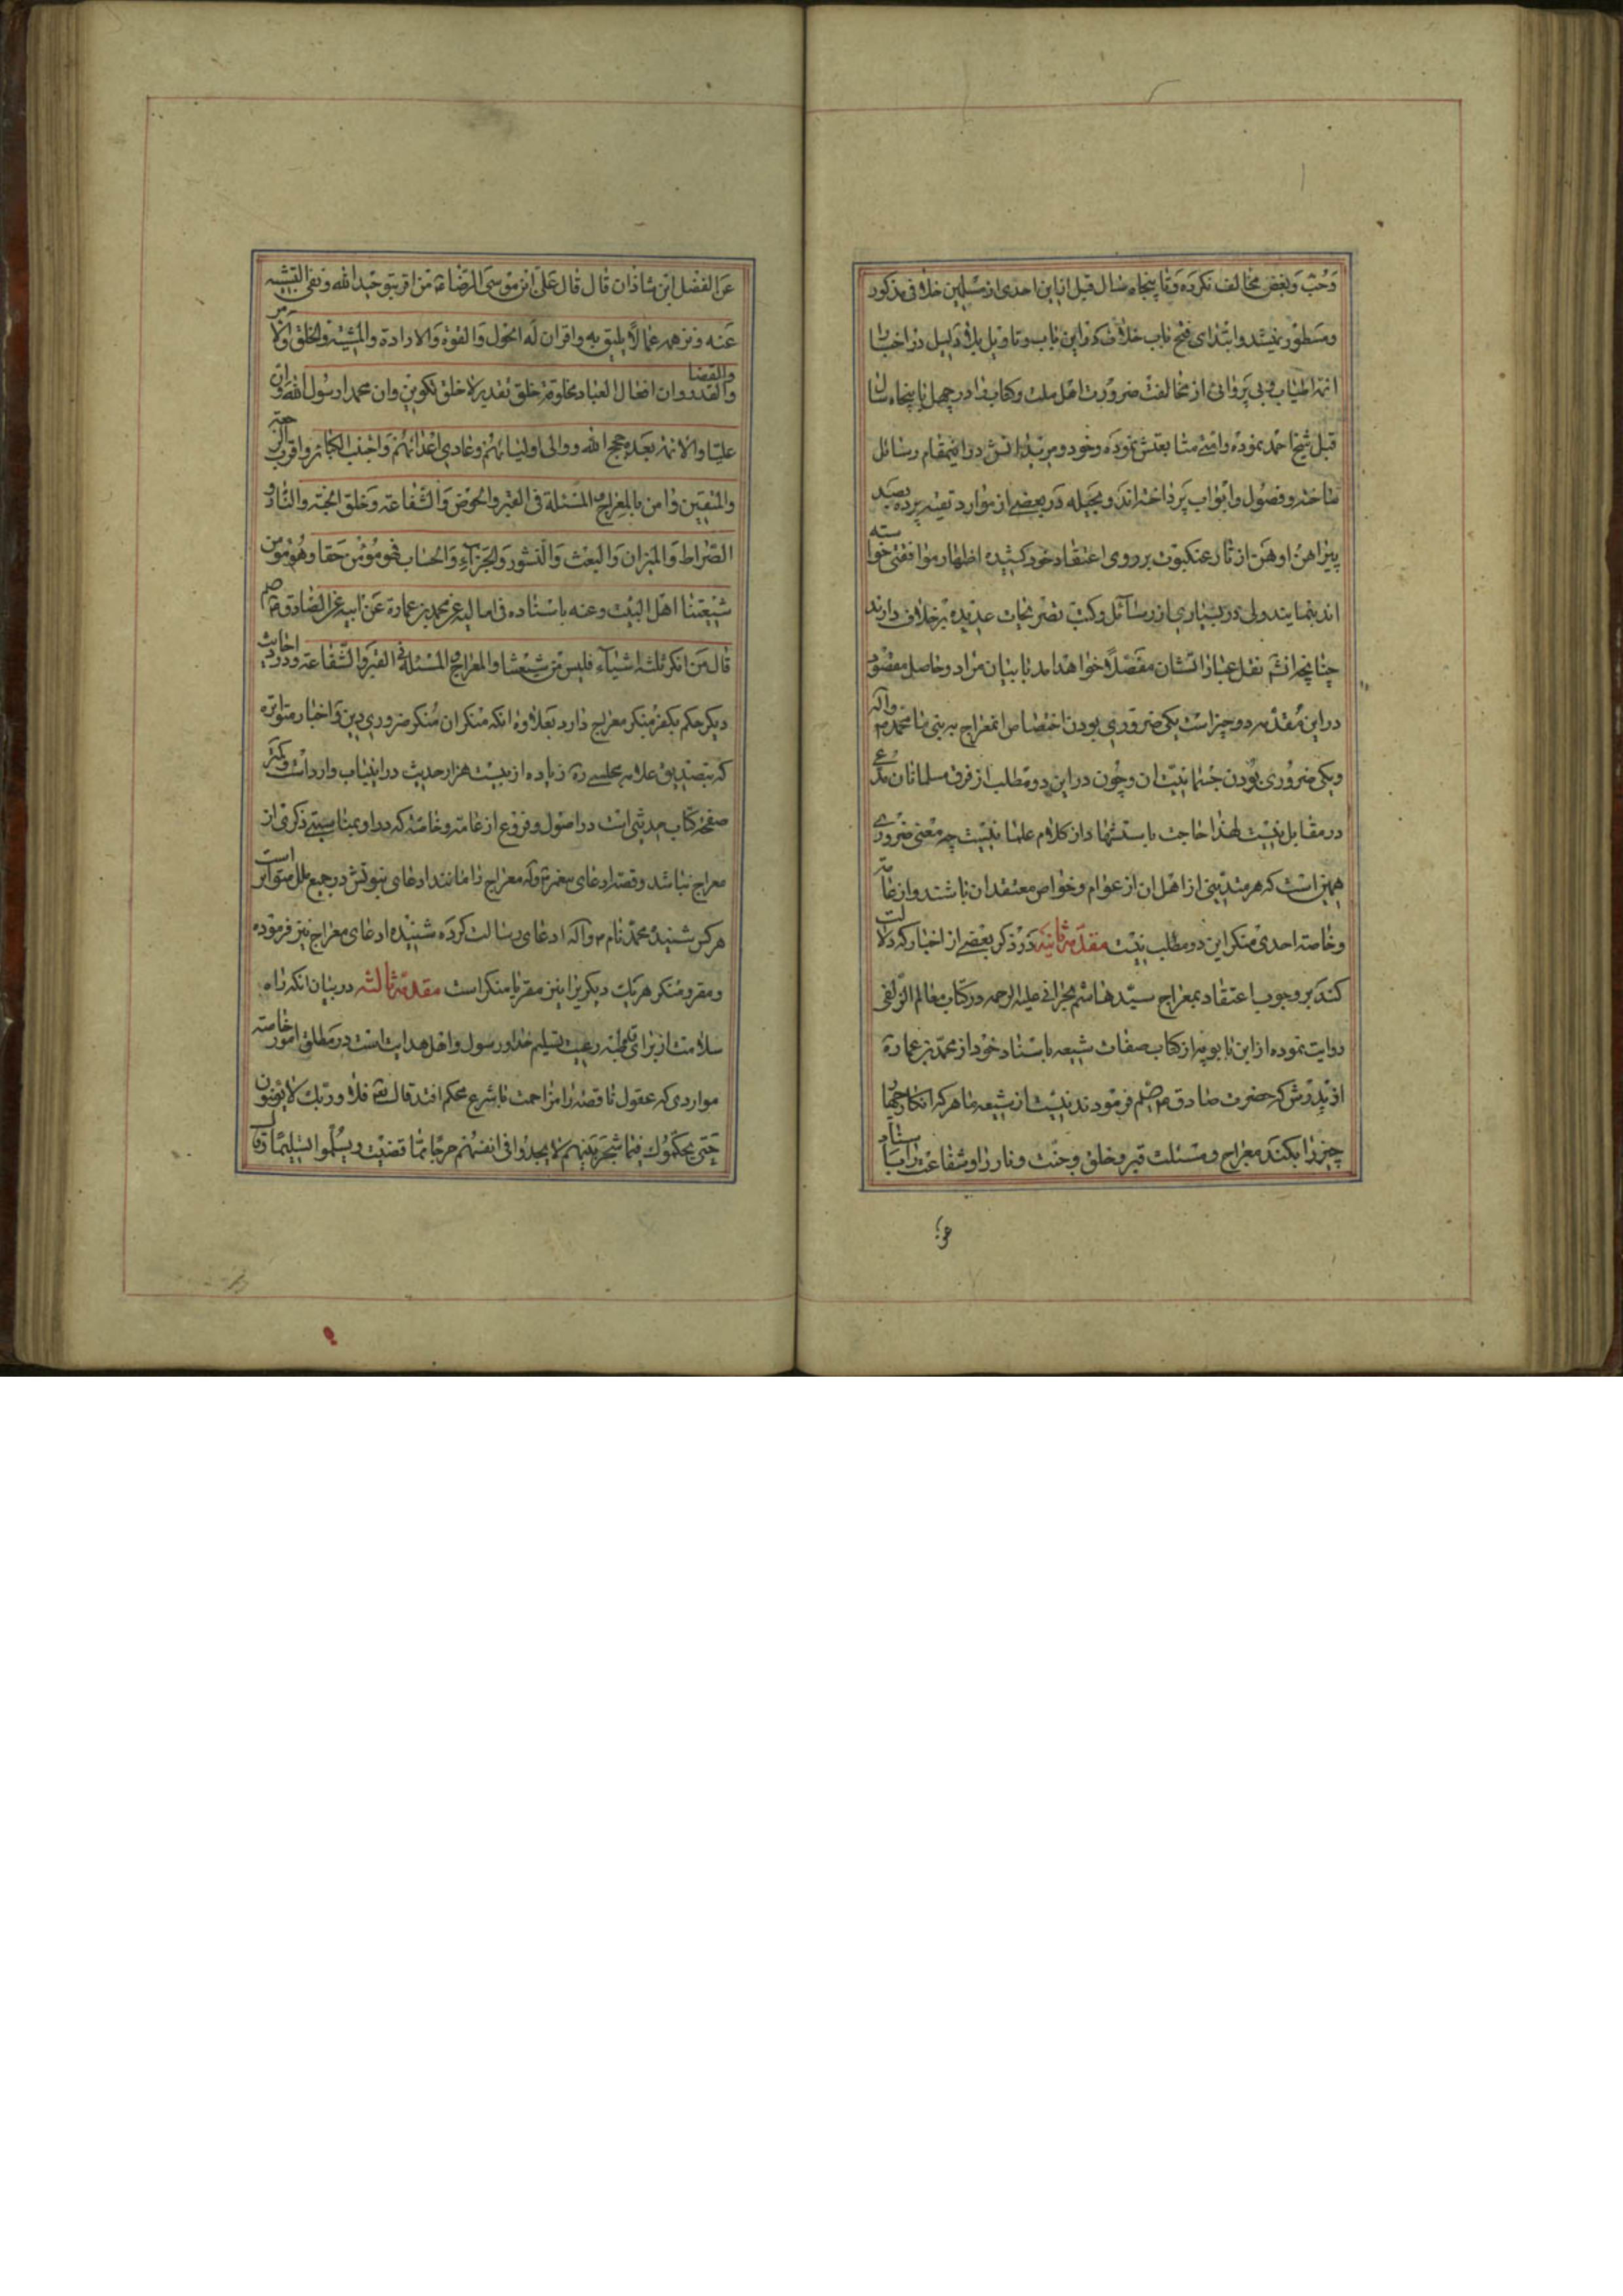 وَحُبّ وَبغض مخالف نکرده وَتا پنجاه سال قبل از این احدی از مسلمین خلافی مذکور
ومسطور نیست وابتدای فتح باب خلاف که در این باب وتاویل بلا دلیل در اخبار
ائمه اطیاب وبی پروائی از مخالفت ضرورت اهل ملت وکتاب را در چهل یا پنجاه سال
قبل شیخ احمد نموده وامتے متابعتش نموده وخود ومریدانش در اینمقام رسائل
ساخته وفصول وابواب پرداخته اند وبحیله در بعضے از موارد تقیه پرده بصد
پیراهن اوهن از تار عنکبوت بر روی اعتقاد خود کشیده اظهار موافقتی خواسته
اند بنمایند ولی در بسیاری از رسائل وکتب تصریحات عدیده بر خلاف دارند
چنانچه انشم نقل عبارات ایشان مفصّلاً خواهد آمد با بیان مراد وحاصل مقصود
در این مقدّمه دو چیز است یکی ضروری بودن اختصاص معراج به نبی ما محمد ص واله
ویکی ضروری بودن جسمانیت ان وچون در این دو مطلب از فرق مسلمانان مدّعی
در مقابل نیست لهذا حاجت باستشهاد از کلام علما نیست چه معنی ضروری
همین است که هر متدینی از اهل ان از عوام وخواص معتقد ان باشند واز عامّه
وخاصه احدی منکر این دو مطلب نیست مقدّمه ثانیه در ذکر بعضے از اخبار که دلالت
کند بر وجوب اعتقاد بمعراج سیّد هاشم بحرانی علیه الرحمه در کتاب معالم الزلفی
روایت نموده از ابن بابویه از کتاب صفات شیعه باسناد خود از محمّد بن عمارة
از پدرش که حضرت صادق ع فرمودند نیست از شیعه ما هر که انکار چهار
چیز را بکند معراج ومسئلت قبر وخلق وجنّت ونار را وشفاعت را باسناد
عن الفضل ابن شاذان قال قال علی ابن موسی الرضا ع من اقر بتوحید الله ونفی التشبیه
عنه ونزهه عمالا یلیق به واقر ان له الحول والقوة والارادة والمشیة والخلق والامر
والقضا والقدر وان افعال العباد مخلوقة خلق تقدیر لا خلق تکوین وان محمدا رسول الله ص وان
علیّا والائمة بعده حجج الله ووالی اولیائهم وعادی اعدائهم واجتنب الکبائر واقر بالرجعة
والمتعتین وامن بالمعراج والمسئلة فی القبر والحوض والشفاعة وخلق الجنة والنار و
الصّراط والمیزان والبعث والنشور والجزاء والحساب فهو مؤمن حقا وهو من
شیعتنا اهل البیت وعنه باسناده فی امالیه عن محمد بن عمارة عن ابیه عن الصادق ع
قال من انکر ثلثة اشیاء فلیس من شیعتنا والمعراج والمسئلة فی القبر والشفاعة ودر احادیث
دیکر حکم بکفر منکر معراج دارد بعلاوه انکه منکر ان منکر ضروری دین واخبار متواتره
که بتصدیق علامه مجلسے ره زیاده از بیست هزار حدیث در اینباب وارد است وکمتر
صفحه کتاب حدیثی است در اصول وفروع از عامه وخاصه که در او بمناسبتے ذکری از
معراج نباشد وقصه ادعای پیغمبر ص واله معراج را مانند ادعای نبوتش در جمیع ملل متواتر است
هر کس شنیده محمد نام ص وآله ادعای رسالت کرده شنیده ادعای معراج نیز فرموده
ومقر ومنکر هر یک دیکریرا نیز مقر یا منکر است مقدمه ثالثه در بیان انکه راه
سلامت از برای قاطبه رعیت تسلیم خدا ورسول واهل هدایت است در مطلق امور خاصه
مواردی که عقول ناقصه را مزاحمت با شرع محکم افتد قال تعه فلا وربک لا یؤمنون
حَتی یحکّموک فیما شجر بینهم لا یجدوا فی انفسهم حرجا مما قضیت ویسلّموا تسلیما وقال